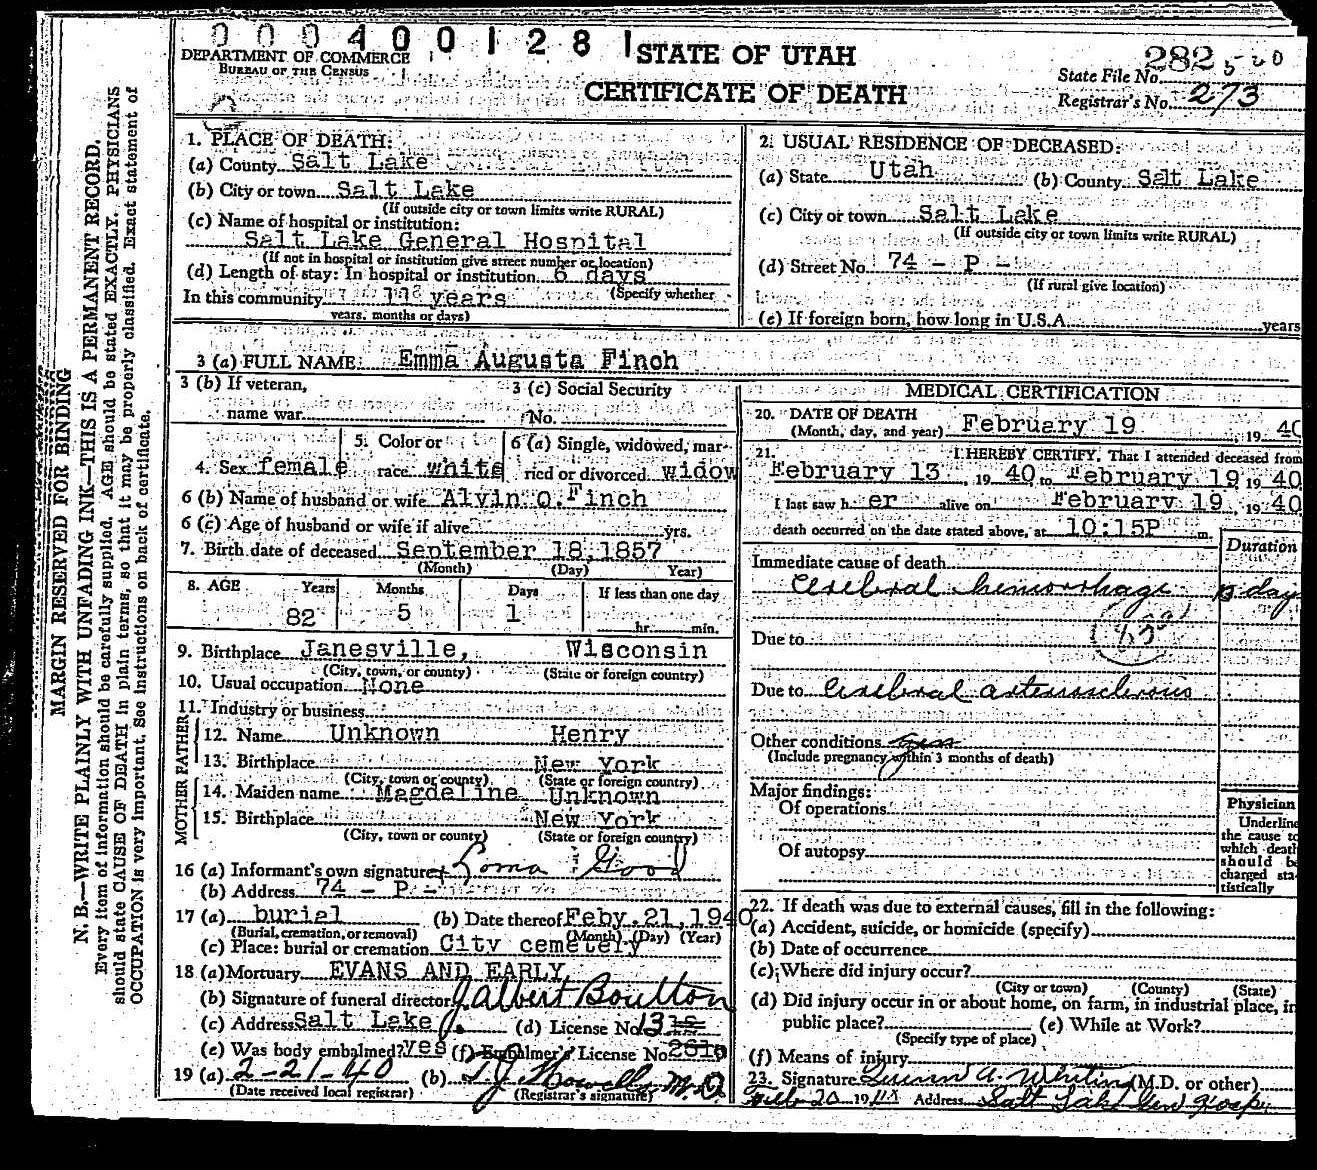 000400128 1
STATE OF UTAH
CERTIFICATE OF DEATH
DEPARTMENT OF COMMERCE
BUREAU OF THE CENSUS
State File No. 282
Registrar's No. 273
MARGIN RESERVED FOR BINDING
N. B.—WRITE PLAINLY WITH UNFADING INK—THIS IS A PERMANENT RECORD.
Every item of information should be carefully supplied. AGE should be stated EXACTLY. PHYSICIANS
should state CAUSE OF DEATH in plain terms, so that it may be properly classified. Exact statement of
OCCUPATION is very important. See Instructions on back of certificate.
1. PLACE OF DEATH:
(a) County Salt Lake
(b) City or town Salt Lake
(If outside city or town limits write RURAL)
(c) Name of hospital or institution:
Salt Lake General Hospital
(If not in hospital or institution give street number or location)
(d) Length of stay: In hospital or institution 6 days
(Specify whether
In this community years
years, months or days)
2. USUAL RESIDENCE OF DECEASED:
(a) State Utah (b) County Salt Lake
(c) City or town Salt Lake
(If outside city or town limits write RURAL)
(d) Street No. 74 - P -
(If rural give location)
(e) If foreign born, how long in U.S.A. years
3 (a) FULL NAME Emma Augusta Finch
3 (b) If veteran,
name war
3 (c) Social Security
No.
4. Sex female
5. Color or
race white
6 (a) Single, widowed, mar-
ried or divorced widow
6 (b) Name of husband or wife Alvin O. Finch
6 (c) Age of husband or wife if alive yrs.
7. Birth date of deceased September 18, 1857
(Month) (Day) Year)
8. AGE Years Months Days If less than one day
82 5 1 hr. min.
9. Birthplace Janesville, Wisconsin
(City, town, or county) (State or foreign country)
10. Usual occupation None
11. Industry or business
FATHER
12. Name Unknown Henry
13. Birthplace New York
(City, town or county) (State or foreign country)
MOTHER
14. Maiden name Magdeline Unknown
15. Birthplace New York
(City, town or county) (State or foreign country)
16 (a) Informant's own signature Loma Good
(b) Address 74 - P -
17 (a) burial (b) Date thereof Feby. 21, 1940
(Burial, cremation, or removal) (Month) (Day) (Year)
(c) Place: burial or cremation City cemetery
18 (a) Mortuary EVANS AND EARLY
(b) Signature of funeral director J. Albert Boulton
(c) Address Salt Lake (d) License No. 13
(e) Was body embalmed? yes (f) Embalmer's License No.
19 (a) 2-21-40 (b) T J Howells, M.D.
(Date received local registrar) (Registrar's signature)
MEDICAL CERTIFICATION
20. DATE OF DEATH
(Month, day, and year) February 19, 19 40
21. I HEREBY CERTIFY, That I attended deceased from
February 13, 19 40 to February 19 19 40
I last saw h er alive on February 19, 19 40
death occurred on the date stated above, at 10:15P m.
Duration
Immediate cause of death
Cerebral hemorrhage days
Due to
Due to Cerebral arteriosclerosis
Other conditions
(Include pregnancy within 3 months of death)
Major findings:
Of operations
Of autopsy
Physician
Underline
the cause to
which death
should be
charged sta-
tistically
22. If death was due to external causes, fill in the following:
(a) Accident, suicide, or homicide (specify)
(b) Date of occurrence
(c) Where did injury occur?
(City or town) (County) (State)
(d) Did injury occur in or about home, on farm, in industrial place, in
public place? (e) While at Work?
(Specify type of place)
(f) Means of injury
23. Signature A. Whiting (M.D. or other)
20 19 Address Salt Lake Gen Hosp.